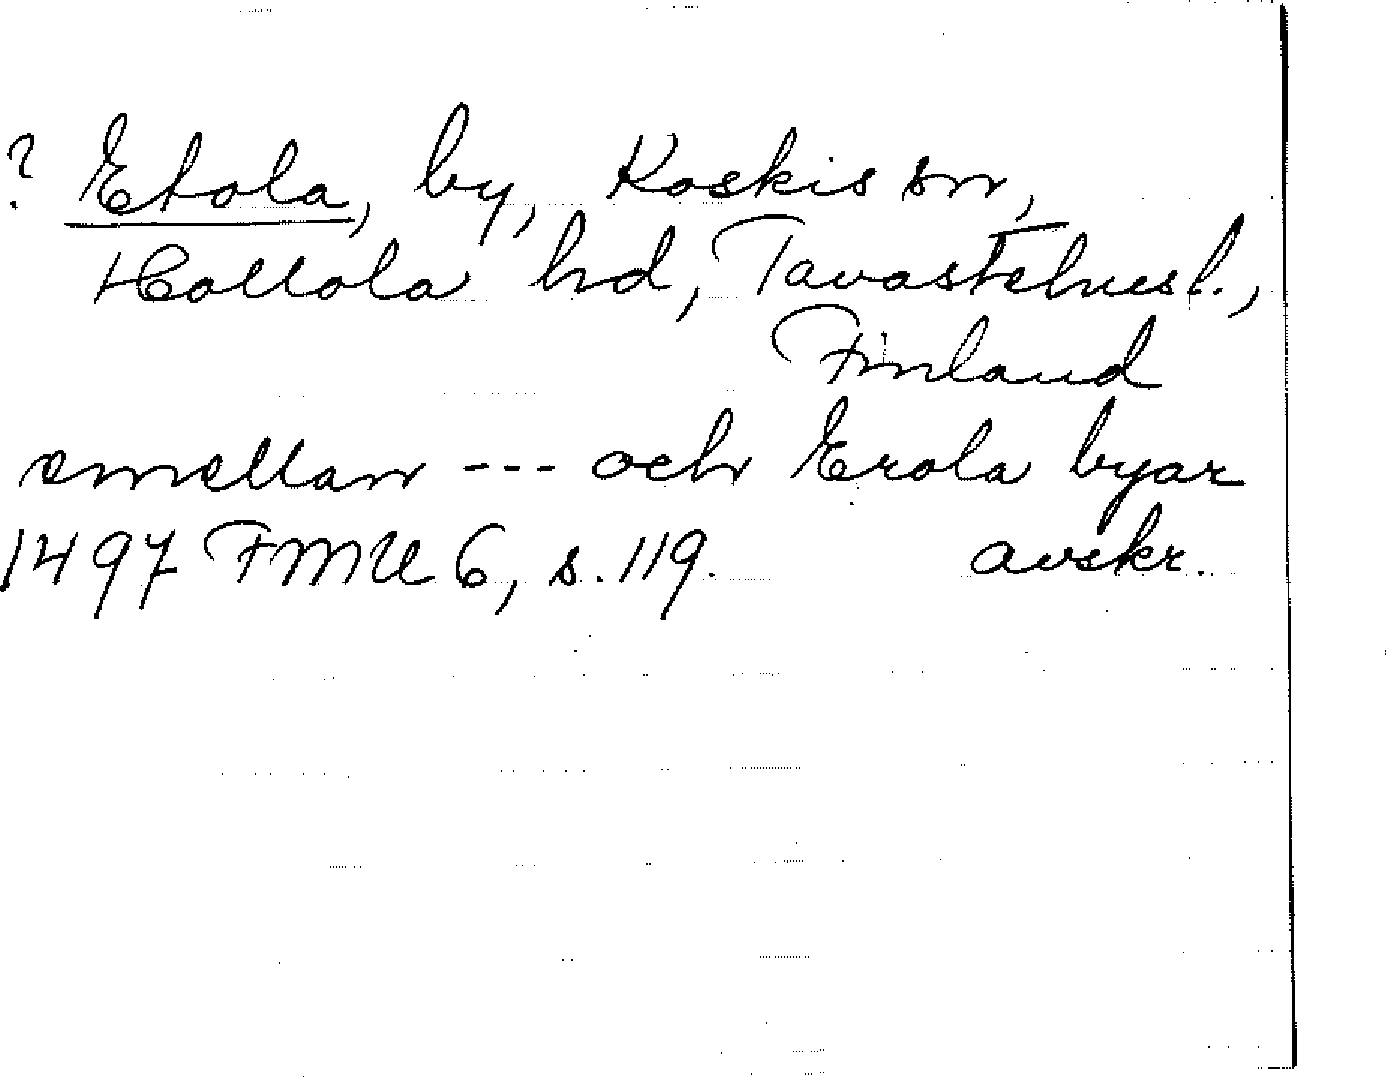 ? Etola, by, Koskis sn,
Hollola hd, Tavastehusl.,
Finland
emellan --- och Erola byar
1497 FMU 6, s. 119. avskr.